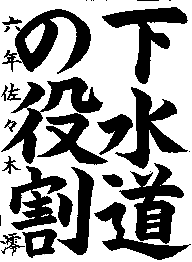 下水道
の役割
六年佐々木澪